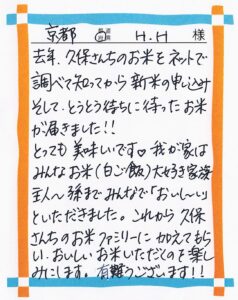 京都 H.H 様
去年、久保さんちのお米をネットで
調べて知ってから新米の申し込み
そして、とうとう待ちに待ったお米
が届きました!!
とっても美味しいです♡我が家は
みんなお米(白ご飯)大好き家族
主人〜孫までみんなで「おいし〜い」
といただきました。これから久保
さんちのお米ファミリーに加えてもら
い、おいしいお米いただくのを楽し
みにします。有難うございます!!